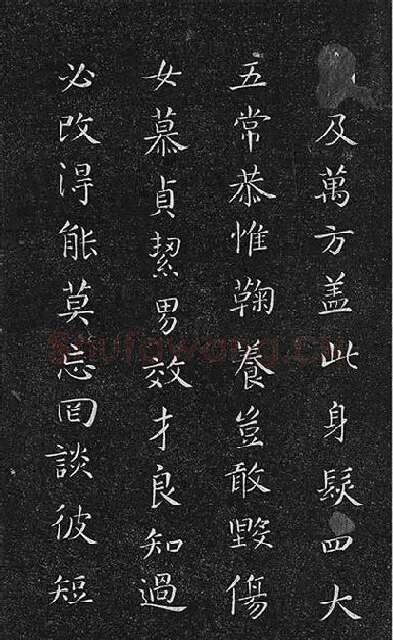 及萬方盖此身髮四大
五常恭惟鞠養豈敢毀傷
女慕貞絜男效才良知過
必改得能莫忘罔談彼短
Shufawang.Cn